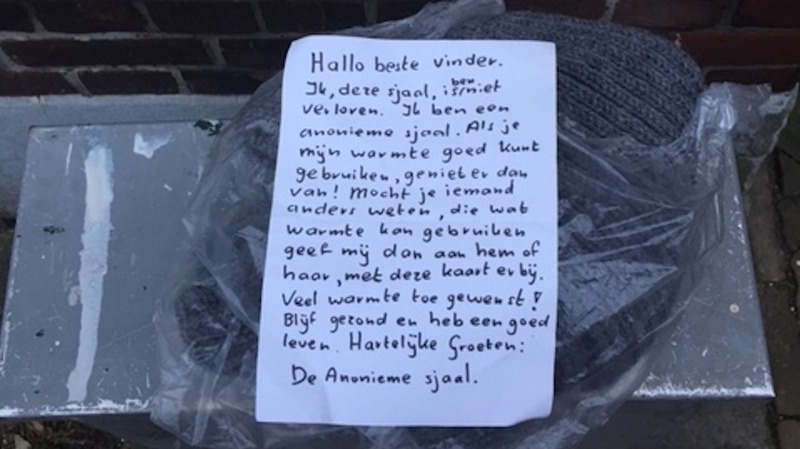 Hallo beste vinder.
Ik, deze sjaal, is/ben niet
verloren. Ik ben een
anonieme sjaal. Als je
mijn warmte goed kunt
gebruiken, geniet er dan
van! Mocht je iemand
anders weten, die wat
warmte kan gebruiken
geef mij dan aan hem of
haar, met deze kaart erbij.
Veel warmte toe gewenst!
Blijf gezond en heb een goed
leven. Hartelijke Groeten:
De Anonieme sjaal.